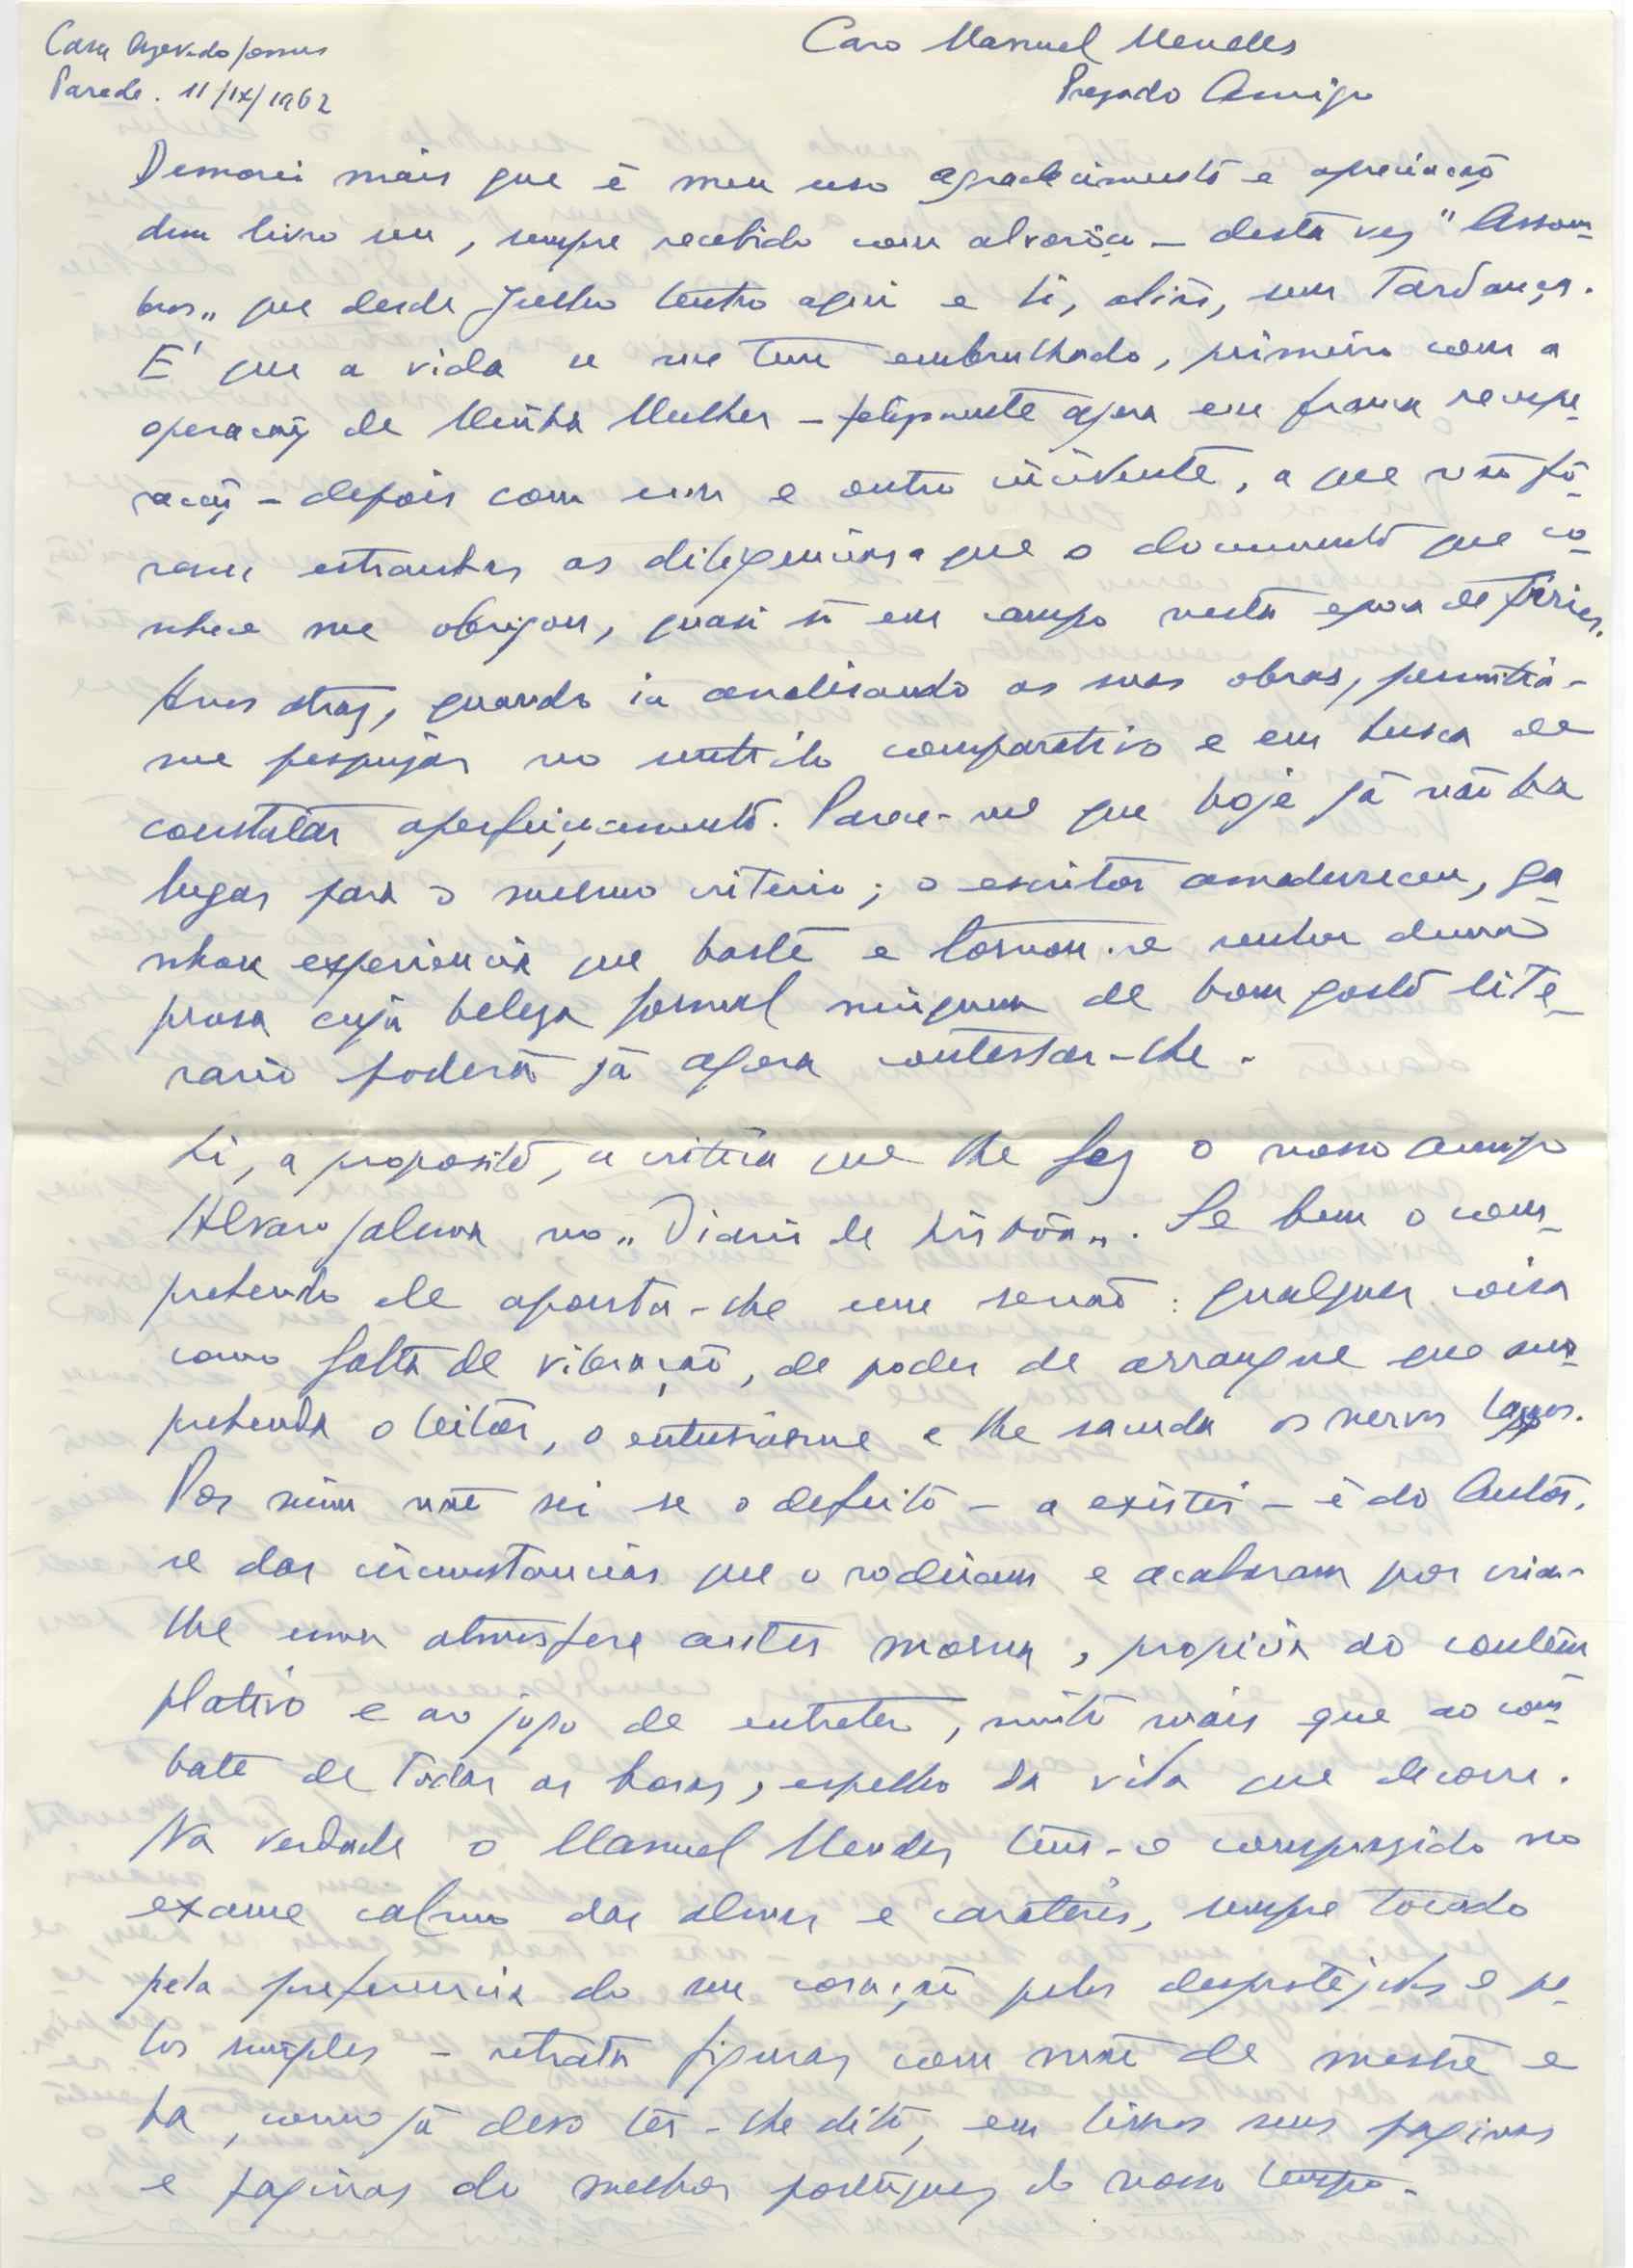 Casa Azevedo Gomes
Parede. 11/IX/1962
Caro Manuel Mendes
Presado Amigo
Demorei mais que é meu uso agradecimento e apreciação
dum livro seu, sempre recebido com alvoroço – desta vez "Assom-
bros„ que desde Julho tenho aqui e li, aliás, sem tardança.
E' que a vida se me tem embrulhado, primeiro com a
operação de Minha Mulher – felizmente agora em franca recupe-
ração – depois com um e outro incidente, a que não fô-
ram estranhas as diligencias a que o documento que co-
nhece me obrigou, quasi só em campo nesta epoca de ferias.
Anos atraz, quando ia analisando as suas obras, permitia-
me respigar no sentido comparativo e em busca de
constatar aperfeiçoamento. Parece-me que hoje já não ha
lugar para o mesmo criterio; o escritor amadureceu, ga-
nhou experiencia que baste e tornou-se senhor duma
prosa cuja beleza formal ninguem de bom gosto lite-
rario poderá já agora contestar-lhe.
Li, a proposito, a critica que lhe fez o nosso amigo
Alvaro Salema no „Diario de Lisbôa„. Se bem o com-
preendo ele aponta-lhe um senão: qualquer coisa
como falta de vibração, de poder de arranque que sur-
preenda o leitor, o entusiasme e lhe sacuda os nervos lassos.
Por mim não sei se o defeito – a existir – é do Autor,
se das circunstancias que o rodeiam e acabaram por criar-
lhe uma atmosfera antes morna, propicia ao contem-
plativo e ao jogo de entreter, muito mais que ao com-
bate de todas as horas, espelho da vida que decorre.
Na verdade o Manuel Mendes tem-se comprazido no
exame calmo das almas e carateres, sempre tocado
pela preferencia do seu coração pelos desprotejidos e pe-
los simples – retrata figuras com mão de mestre e
ha, como já devo ter-lhe dito, em livros seus paginas
e paginas do melhor português do nosso tempo.